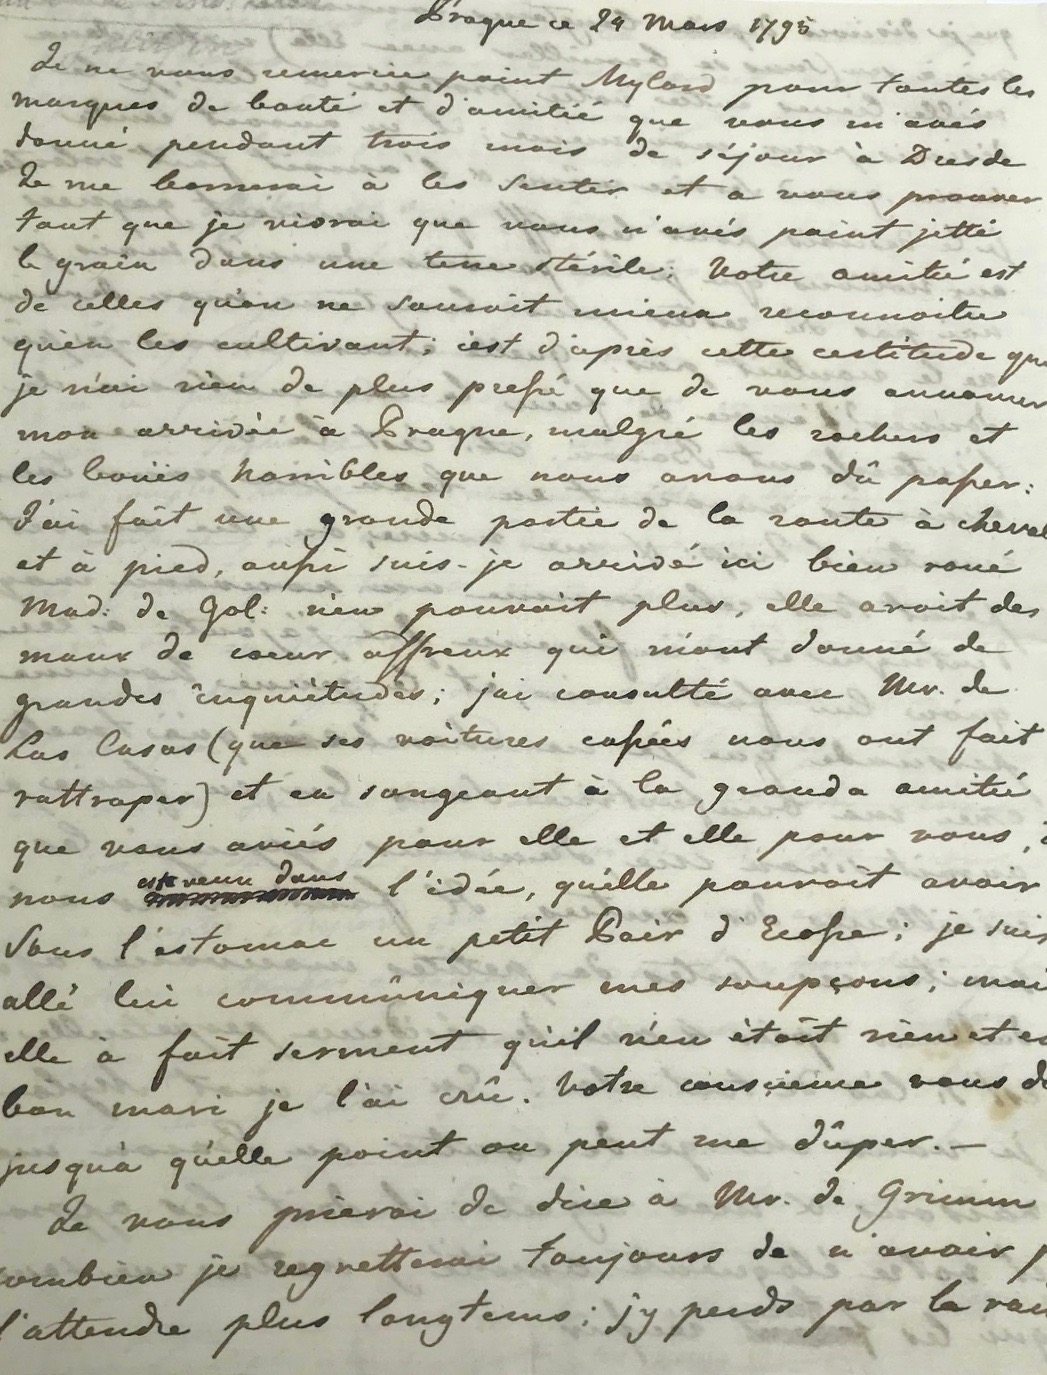 Prague ce 24 Mars 1795
Je ne vous remercie point Mylord pour toutes les
marques de bonté et d'amitié que vous m'avés
donné pendant trois mois de séjour à Dresde
Je me bornerai à les sentir et a vous prouver
tant que je vivrai que vous n'avés point jetté
le grain dans une terre stérile. Votre amitié est
de celles qu'on ne sauroit mieux reconnoitre
qu'en les cultivant; c'est d'après cette certitude que
je n'ai rien de plus pressé que de vous annoncer
mon arrivée à Prague, malgré les rochers et
les bouës horribles que nous avons dû passer:
J'ai fait une grande partie de la route à cheval
et à pied, aussi suis-je arrivé ici bien roué
Mad: de Gol: n'en pouvoit plus, elle avoit des
maux de coeur affreux qui m'ont donné de
grandes inquiétudes; j'ai consulté avec Mr. de
Las Casas (que ses voitures cassées nous ont fait
rattraper) et en songeant à la grande amitié
que vous aviés pour elle et elle pour vous,
nous est venu dans l'idée, qu'elle pouvoit avoir
sous l'estomac un petit Pair d'Ecosse; je suis
allé lui communiquer mes soupçons; mai
elle à fait serment qu'il n'en étoit rien et en
bon mari je l'ai crû. Votre conscience vous d
jusqu'à qu'elle point on peut me dûper. —
Je vous prierai de dire à Mr. de Grimm
combien je regretterai toujours de n'avoir p
l'attendre plus longtems; j'y perds par la rai